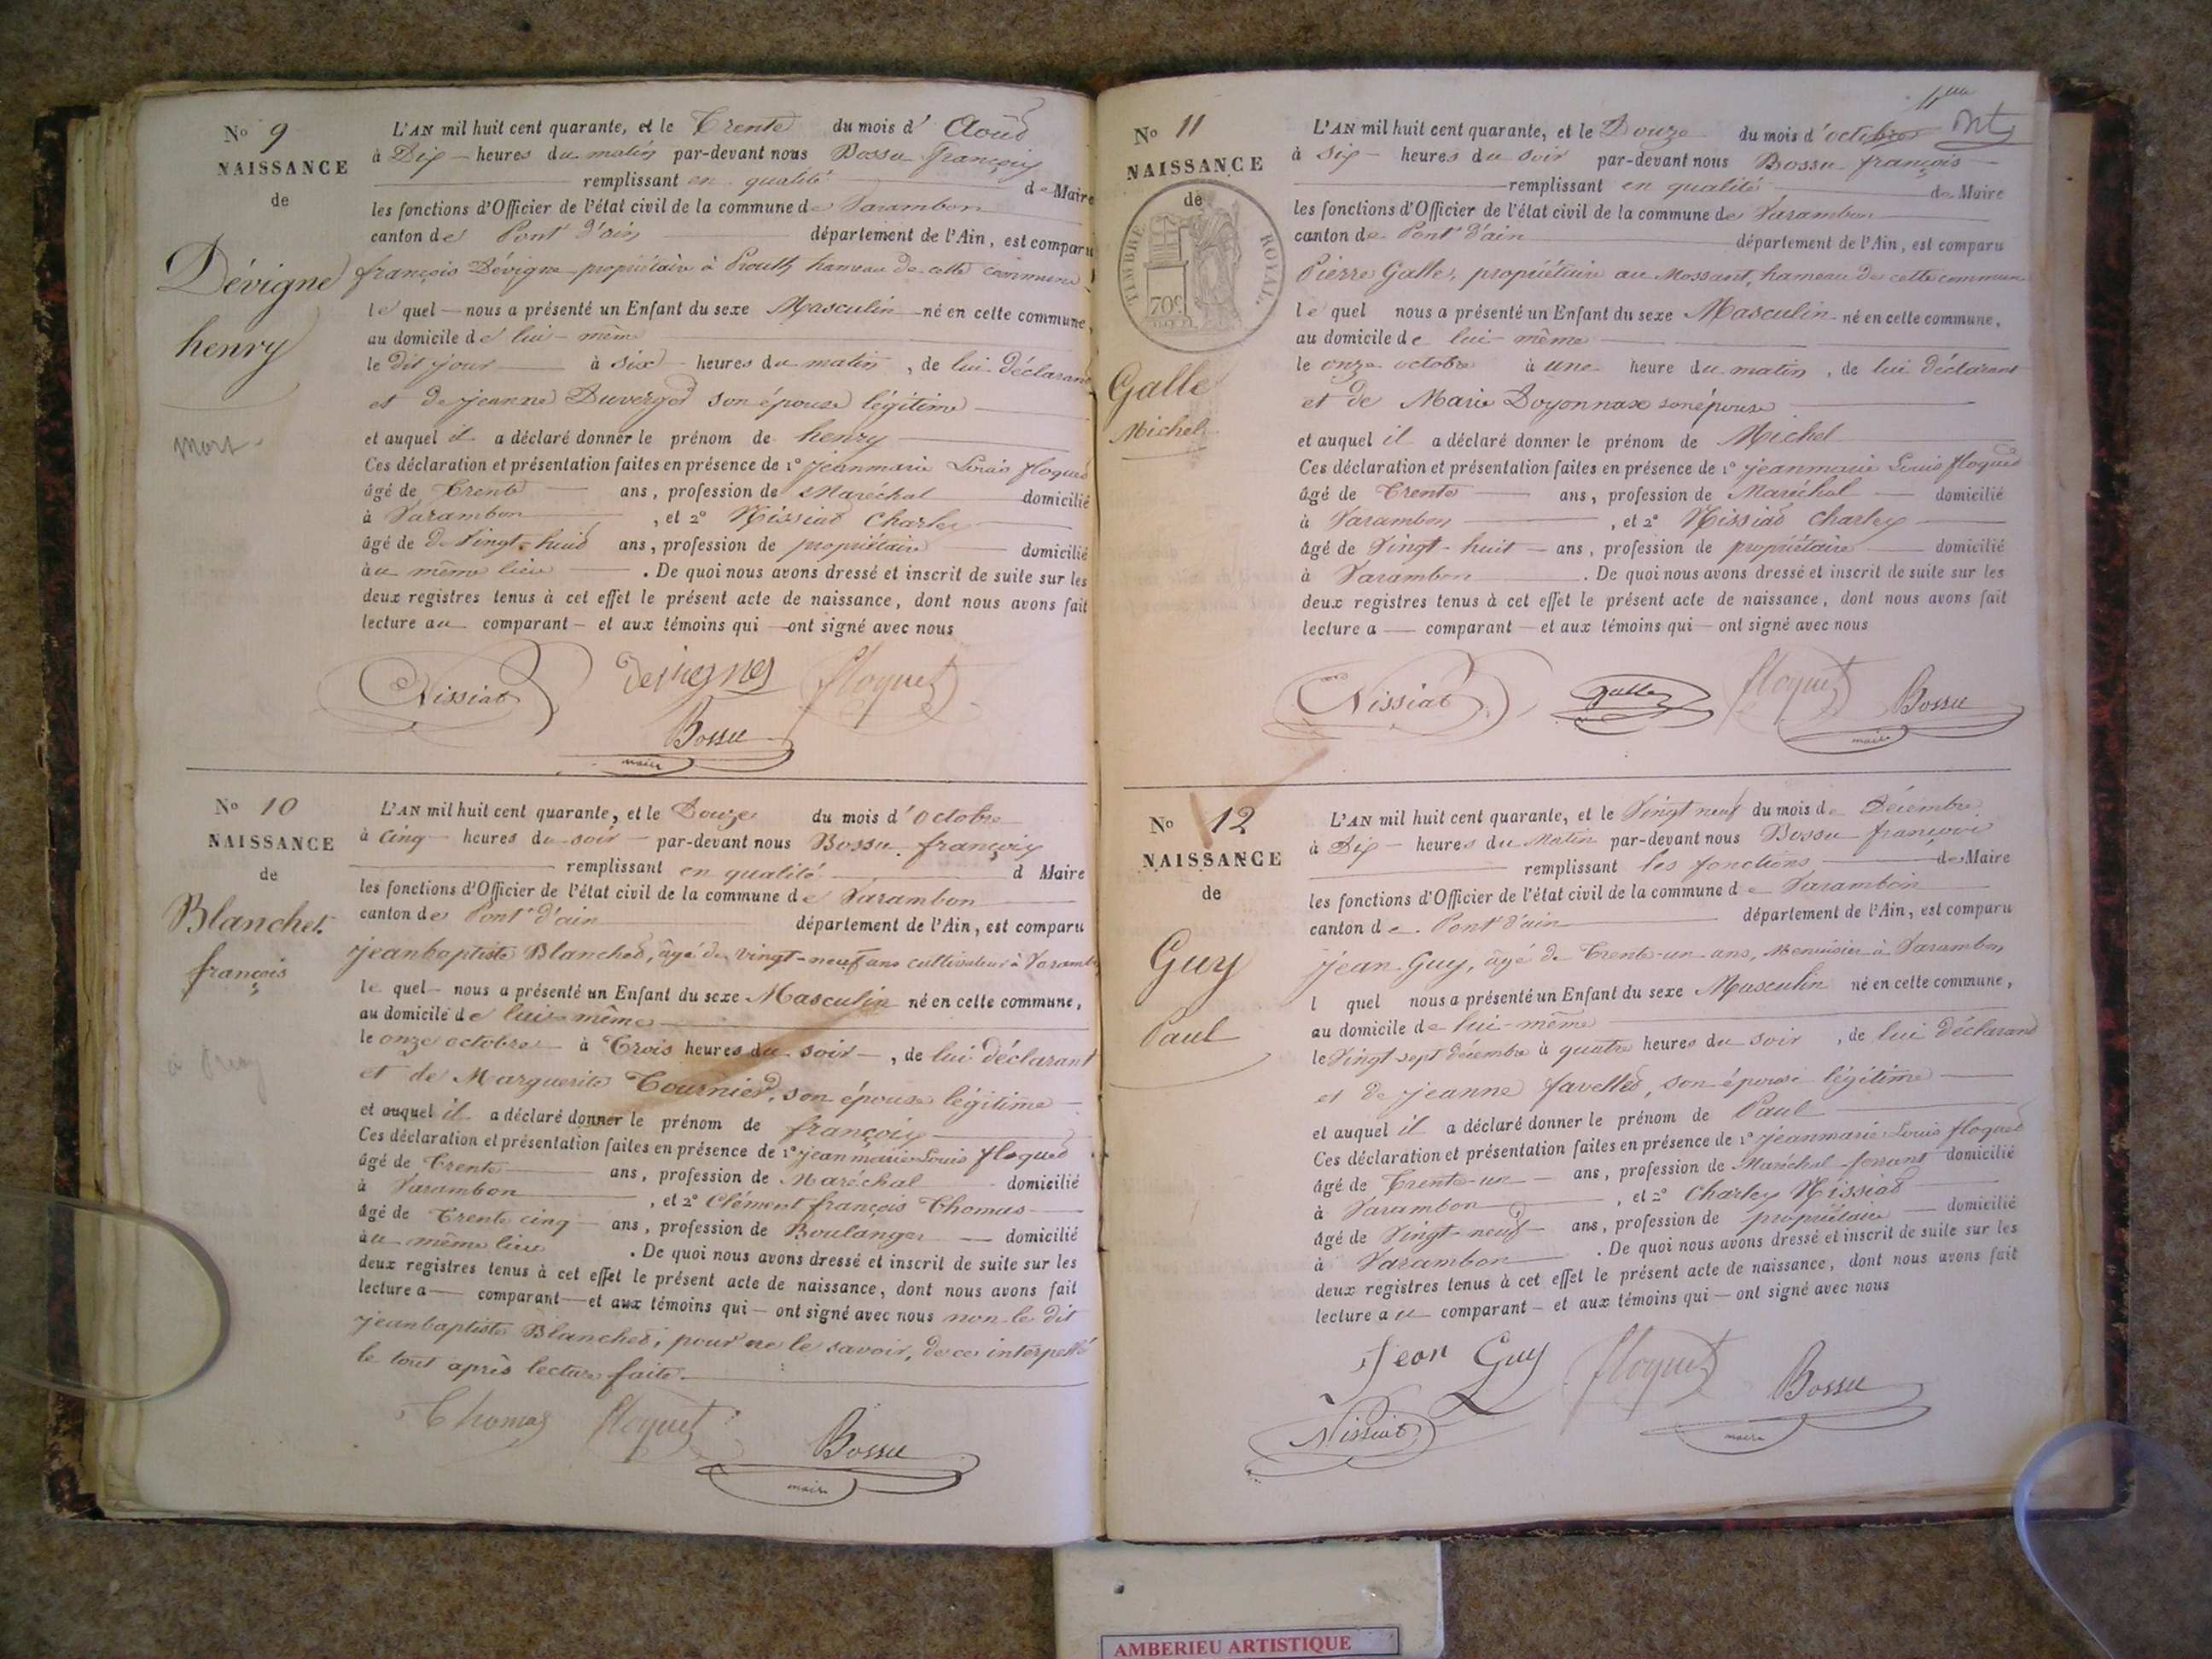 No 9
NAISSANCE
de
Dévigne
henry
mort
L'AN mil huit cent quarante, et le Trente du mois d' Aoûd
à Dix heures du matin par-devant nous Bossu François
remplissant en qualité de Maire
les fonctions d'Officier de l'état civil de la commune de Varambon
canton de Pont d'ain département de l'Ain, est comparu
françois Dévigne propriétaire à hameau de cette commune
lequel nous a présenté un Enfant du sexe Masculin né en cette commune,
au domicile de lui-mêm
le dit jour à six heures du matin, de lui déclarant
et de jeanne Duverged son épouse légitime
et auquel il a déclaré donner le prénom de henry
Ces déclaration et présentation faites en présence de 1° jeanmarie Louis floqued
âgé de Trente ans, profession de Maréchal domicilié
à Varambon, et 2° Nissiad Charles
âgé de de Vingt-huid ans, profession de propriétaire domicilié
au même lieu. De quoi nous avons dressé et inscrit de suite sur les
deux registres tenus à cet effet le présent acte de naissance, dont nous avons fait
lecture au comparant et aux témoins qui ont signé avec nous
Nissiat floquet
Bossu
maire
No 10
NAISSANCE
de
Blanchet
françois
L'AN mil huit cent quarante, et le Douze du mois d'octobre
à cinq heures du soir par-devant nous Bossu françois
remplissant en qualité d Maire
les fonctions d'Officier de l'état civil de la commune de Varambon
canton de Pont d'ain département de l'Ain, est comparu
jeanbaptiste Blanched, âgé de vingt-neuf ans cultivateur à Varambon
lequel nous a présenté un Enfant du sexe Masculin né en cette commune,
au domicile de lui-même
le onze octobre à Trois heures du soir, de lui déclarant
et de Marguerite Tournier, son épouse légitime
et auquel il a déclaré donner le prénom de françois
Ces déclaration et présentation faites en présence de 1° jeanmarie Louis floqued
âgé de Trente ans, profession de Maréchal domicilié
à Varambon, et 2° Clément françois Thomas
âgé de Trente cinq ans, profession de Boulanger domicilié
au même lieu. De quoi nous avons dressé et inscrit de suite sur les
deux registres tenus à cet effet le présent acte de naissance, dont nous avons fait
lecture a comparant et aux témoins qui ont signé avec nous non le dit
jeanbaptiste Blanched, pour ne le savoir, de ce interpellé
le tout après lecture faite.
Thomas floquet Bossu
maire
No 11
NAISSANCE
de
TIMBRE ROYAL
70c
Galle
Michel
L'AN mil huit cent quarante, et le Douze du mois d'octobre
à six heures du soir par-devant nous Bossu françois
remplissant en qualité de Maire
les fonctions d'Officier de l'état civil de la commune de Varambon
canton de Pont d'ain département de l'Ain, est comparu
Pierre Galle, propriétaire au Mossant, hameau de cette commune
lequel nous a présenté un Enfant du sexe Masculin né en cette commune,
au domicile de lui-même
le onze octobre à une heure du matin, de lui déclarant
et de Marie Doyonnax son épouse
et auquel il a déclaré donner le prénom de Michel
Ces déclaration et présentation faites en présence de 1° jeanmarie Louis floqued
âgé de Trente ans, profession de Maréchal domicilié
à Varambon, et 2° Nissiad Charles
âgé de Vingt-huit ans, profession de propriétaire domicilié
à Varambon. De quoi nous avons dressé et inscrit de suite sur les
deux registres tenus à cet effet le présent acte de naissance, dont nous avons fait
lecture a comparant et aux témoins qui ont signé avec nous
Nissiat galle floquet Bossu
maire
No 12
NAISSANCE
de
Guy
Paul
L'AN mil huit cent quarante, et le Vingt neuf du mois de Décembre
à Dix heures du Matin par-devant nous Bossu françois
remplissant les fonctions de Maire
les fonctions d'Officier de l'état civil de la commune de Varambon
canton de Pont d'ain département de l'Ain, est comparu
jean Guy, âgé de Trente-un ans, Menuisier à Varambon
l quel nous a présenté un Enfant du sexe Masculin né en cette commune,
au domicile de lui-même
le Vingt sept décembre à quatre heures du soir, de lui déclarand
et de jeanne favelled, son épouse légitime
et auquel il a déclaré donner le prénom de Paul
Ces déclaration et présentation faites en présence de 1° jeanmarie Louis floqued
âgé de Trente-un ans, profession de Maréchal-ferrant domicilié
à Varambon, et 2° Charles Nissiad
âgé de Vingt-neuf ans, profession de propriétaire domicilié
à Varambon. De quoi nous avons dressé et inscrit de suite sur les
deux registres tenus à cet effet le présent acte de naissance, dont nous avons fait
lecture au comparant et aux témoins qui ont signé avec nous
Jean Guy floquet Bossu
maire
Nissiat
AMBERIEU ARTISTIQUE